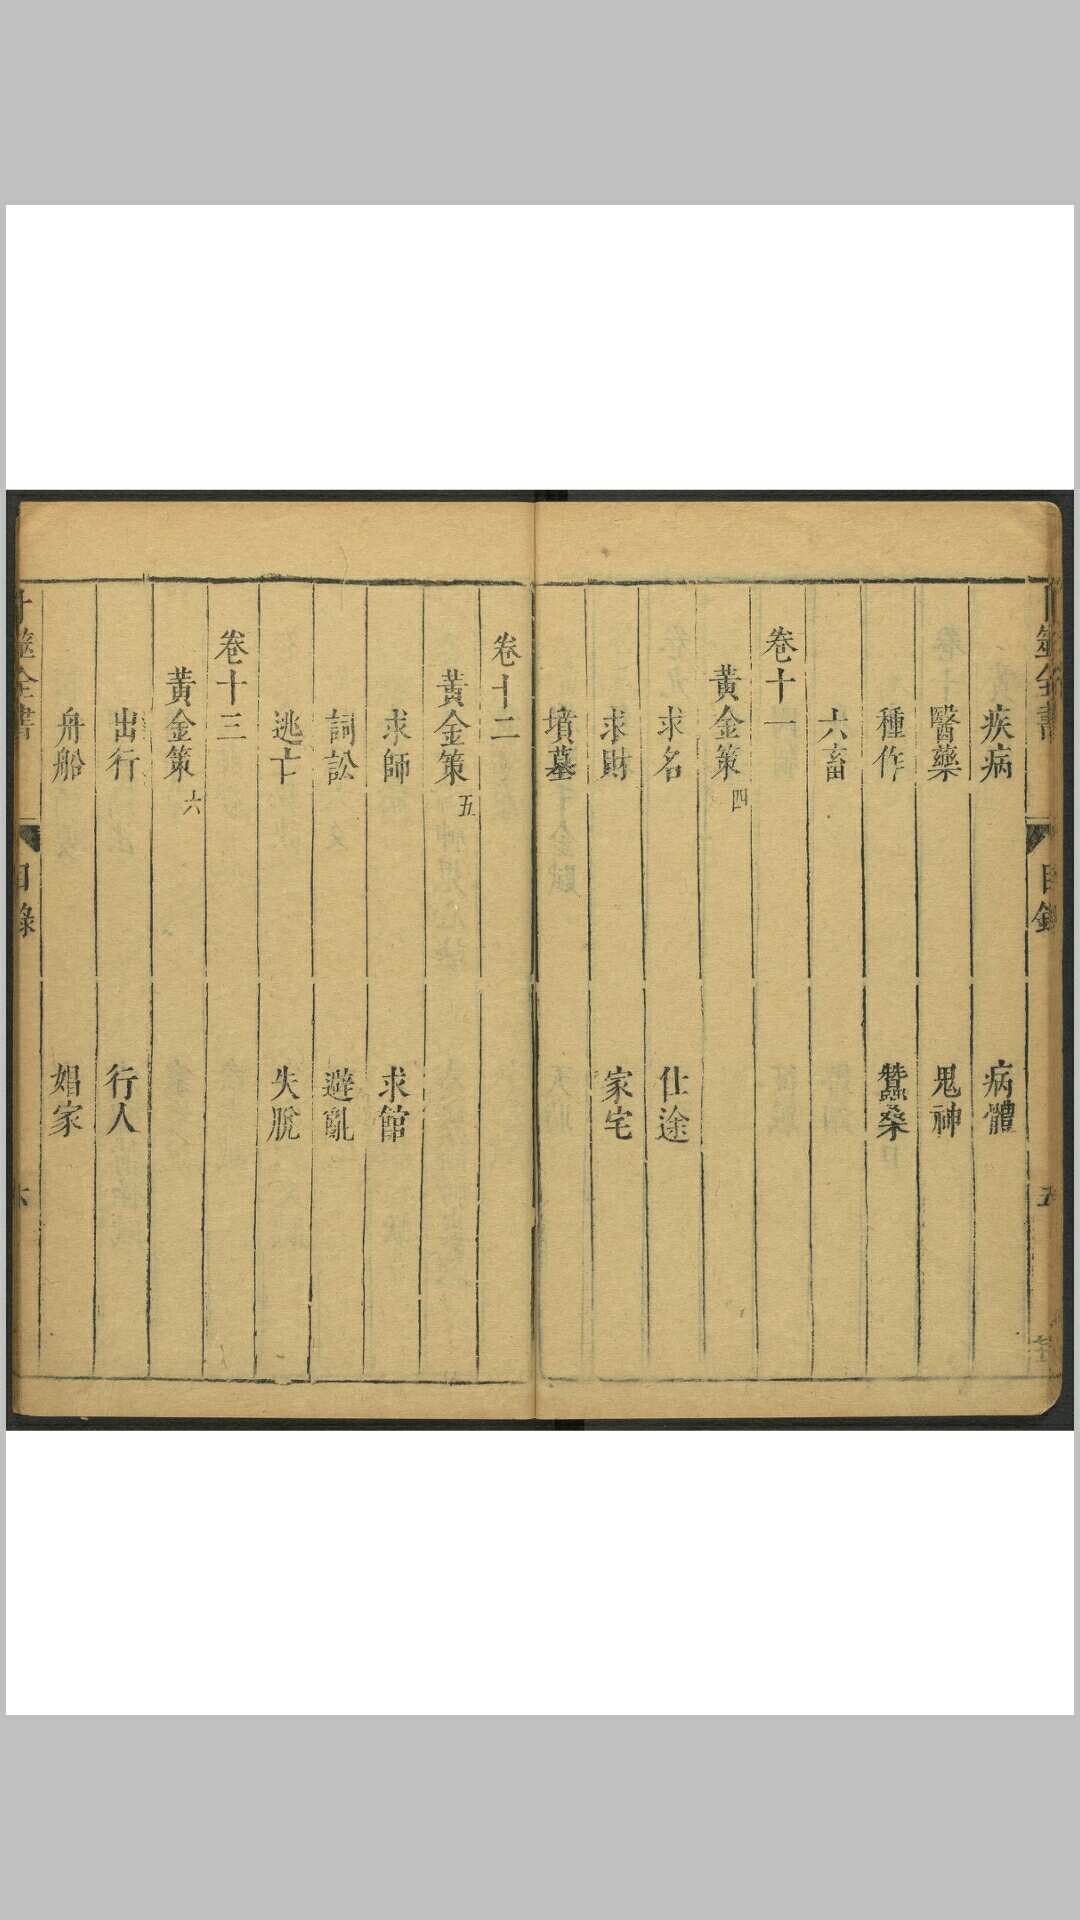 卜筮全書
目錄
五
疾病 病體
醫藥 鬼神
種作 蠶桑
六畜
卷十一
黃金策四
求名 仕途
求財 家宅
墳墓
卷十二
黃金策五
求師 求館
詞訟 避亂
逃亡 失脫
卷十三
黃金策六
出行 行人
舟船 娼家
卜筮全書
目錄
六